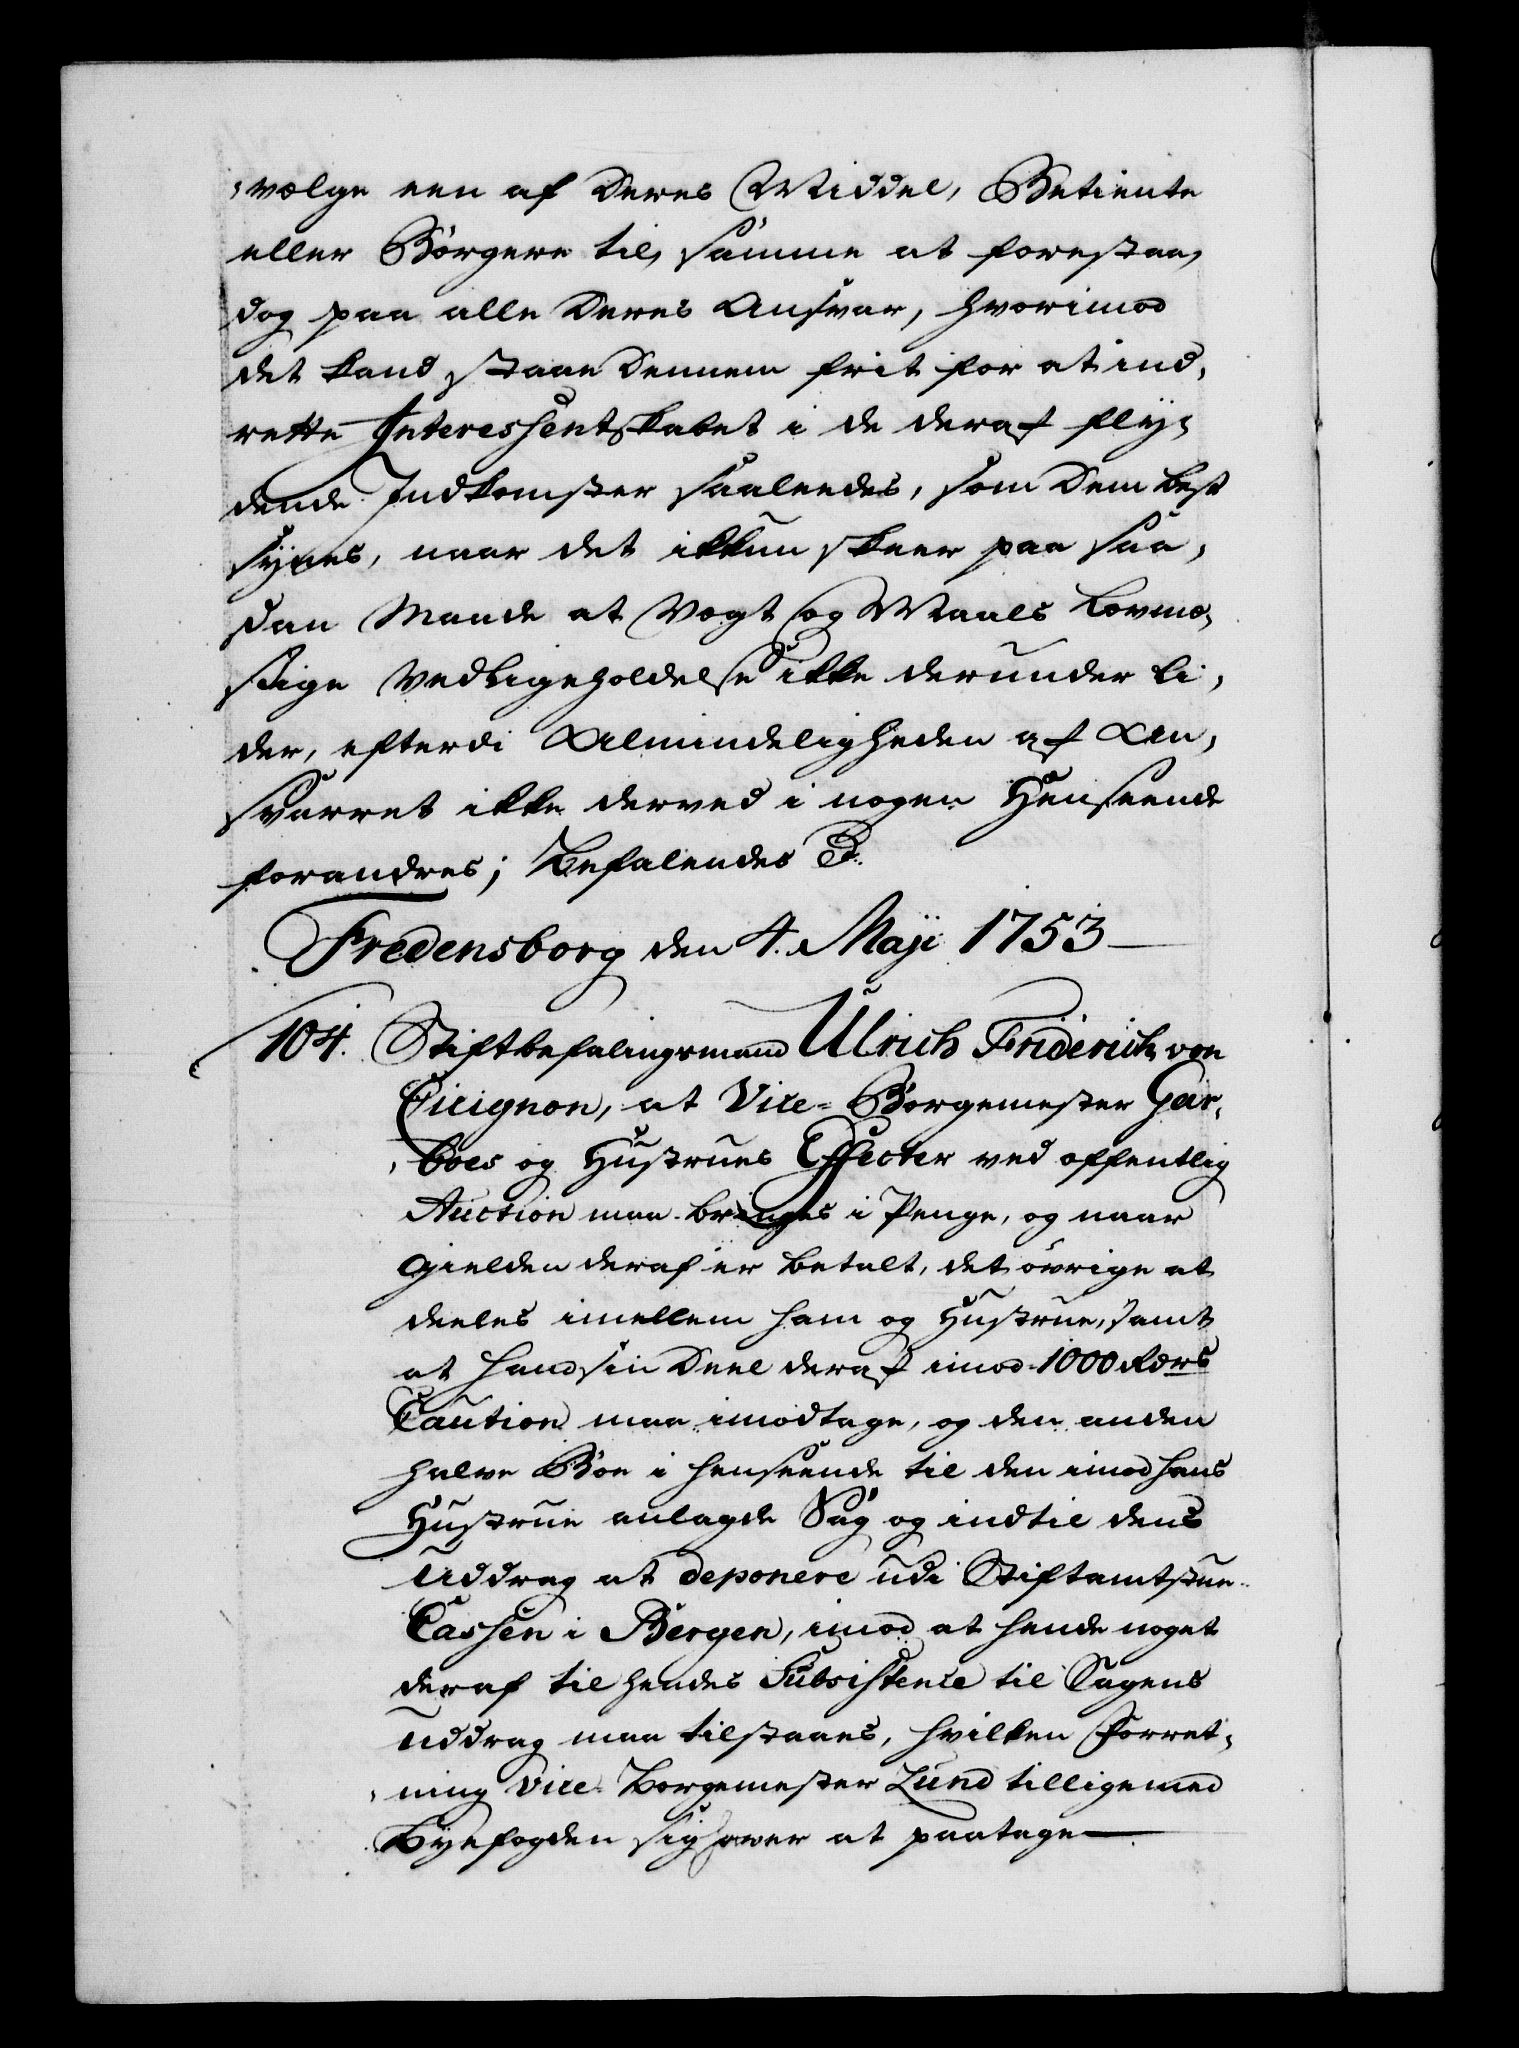 vælge een af Deres Middel, Betiente
eller Borgere til, samme at forestaa,
dog paa alle Deres Ansvar, hvorimod
det kand staae Dennem frit for at ind,
rette Interessentskabet i de deraf fly,
dende Indkomster saaledes, som Dem best
synes, naar det ikkun skeer paa saa,
dan Maade at Vægt og Maals Lovmæ,
ssige Vedligeholdelse ikke derunder li,
der, efterdi Almindeligheden af An,
svarret ikke derved i nogen Henseende
forandres; Befalendes &.
Fredensborg den 4. Maji 1753
104. Stiftbefalingsmand Ulrich Friderich von
Cicignon, at Vice-Borgemester Gar,
boes og Hustrues Effecter ved offentlig
Auction maa bringes i Penge, og naar
Gielden deraf er betalt, det øvrige at
deeles imellem ham og Hustrue, samt
at hand sin Deel deraf imod 1000 Rdrs
Caution maa imodtage, og den anden
halve Boe i henseende til den imod hans
Hustrue anlagde Sag og indtil dens
Uddrag at deponere udi Stiftamtstue-
Cassen i Bergen, imod at hende noget
deraf til hendes Subsistence til Sagens
Uddrag maa tilstaaes, hvilken Forret,
ning Vice-Borgemester Lund tilligemed
Byefogden sig haver at paatage